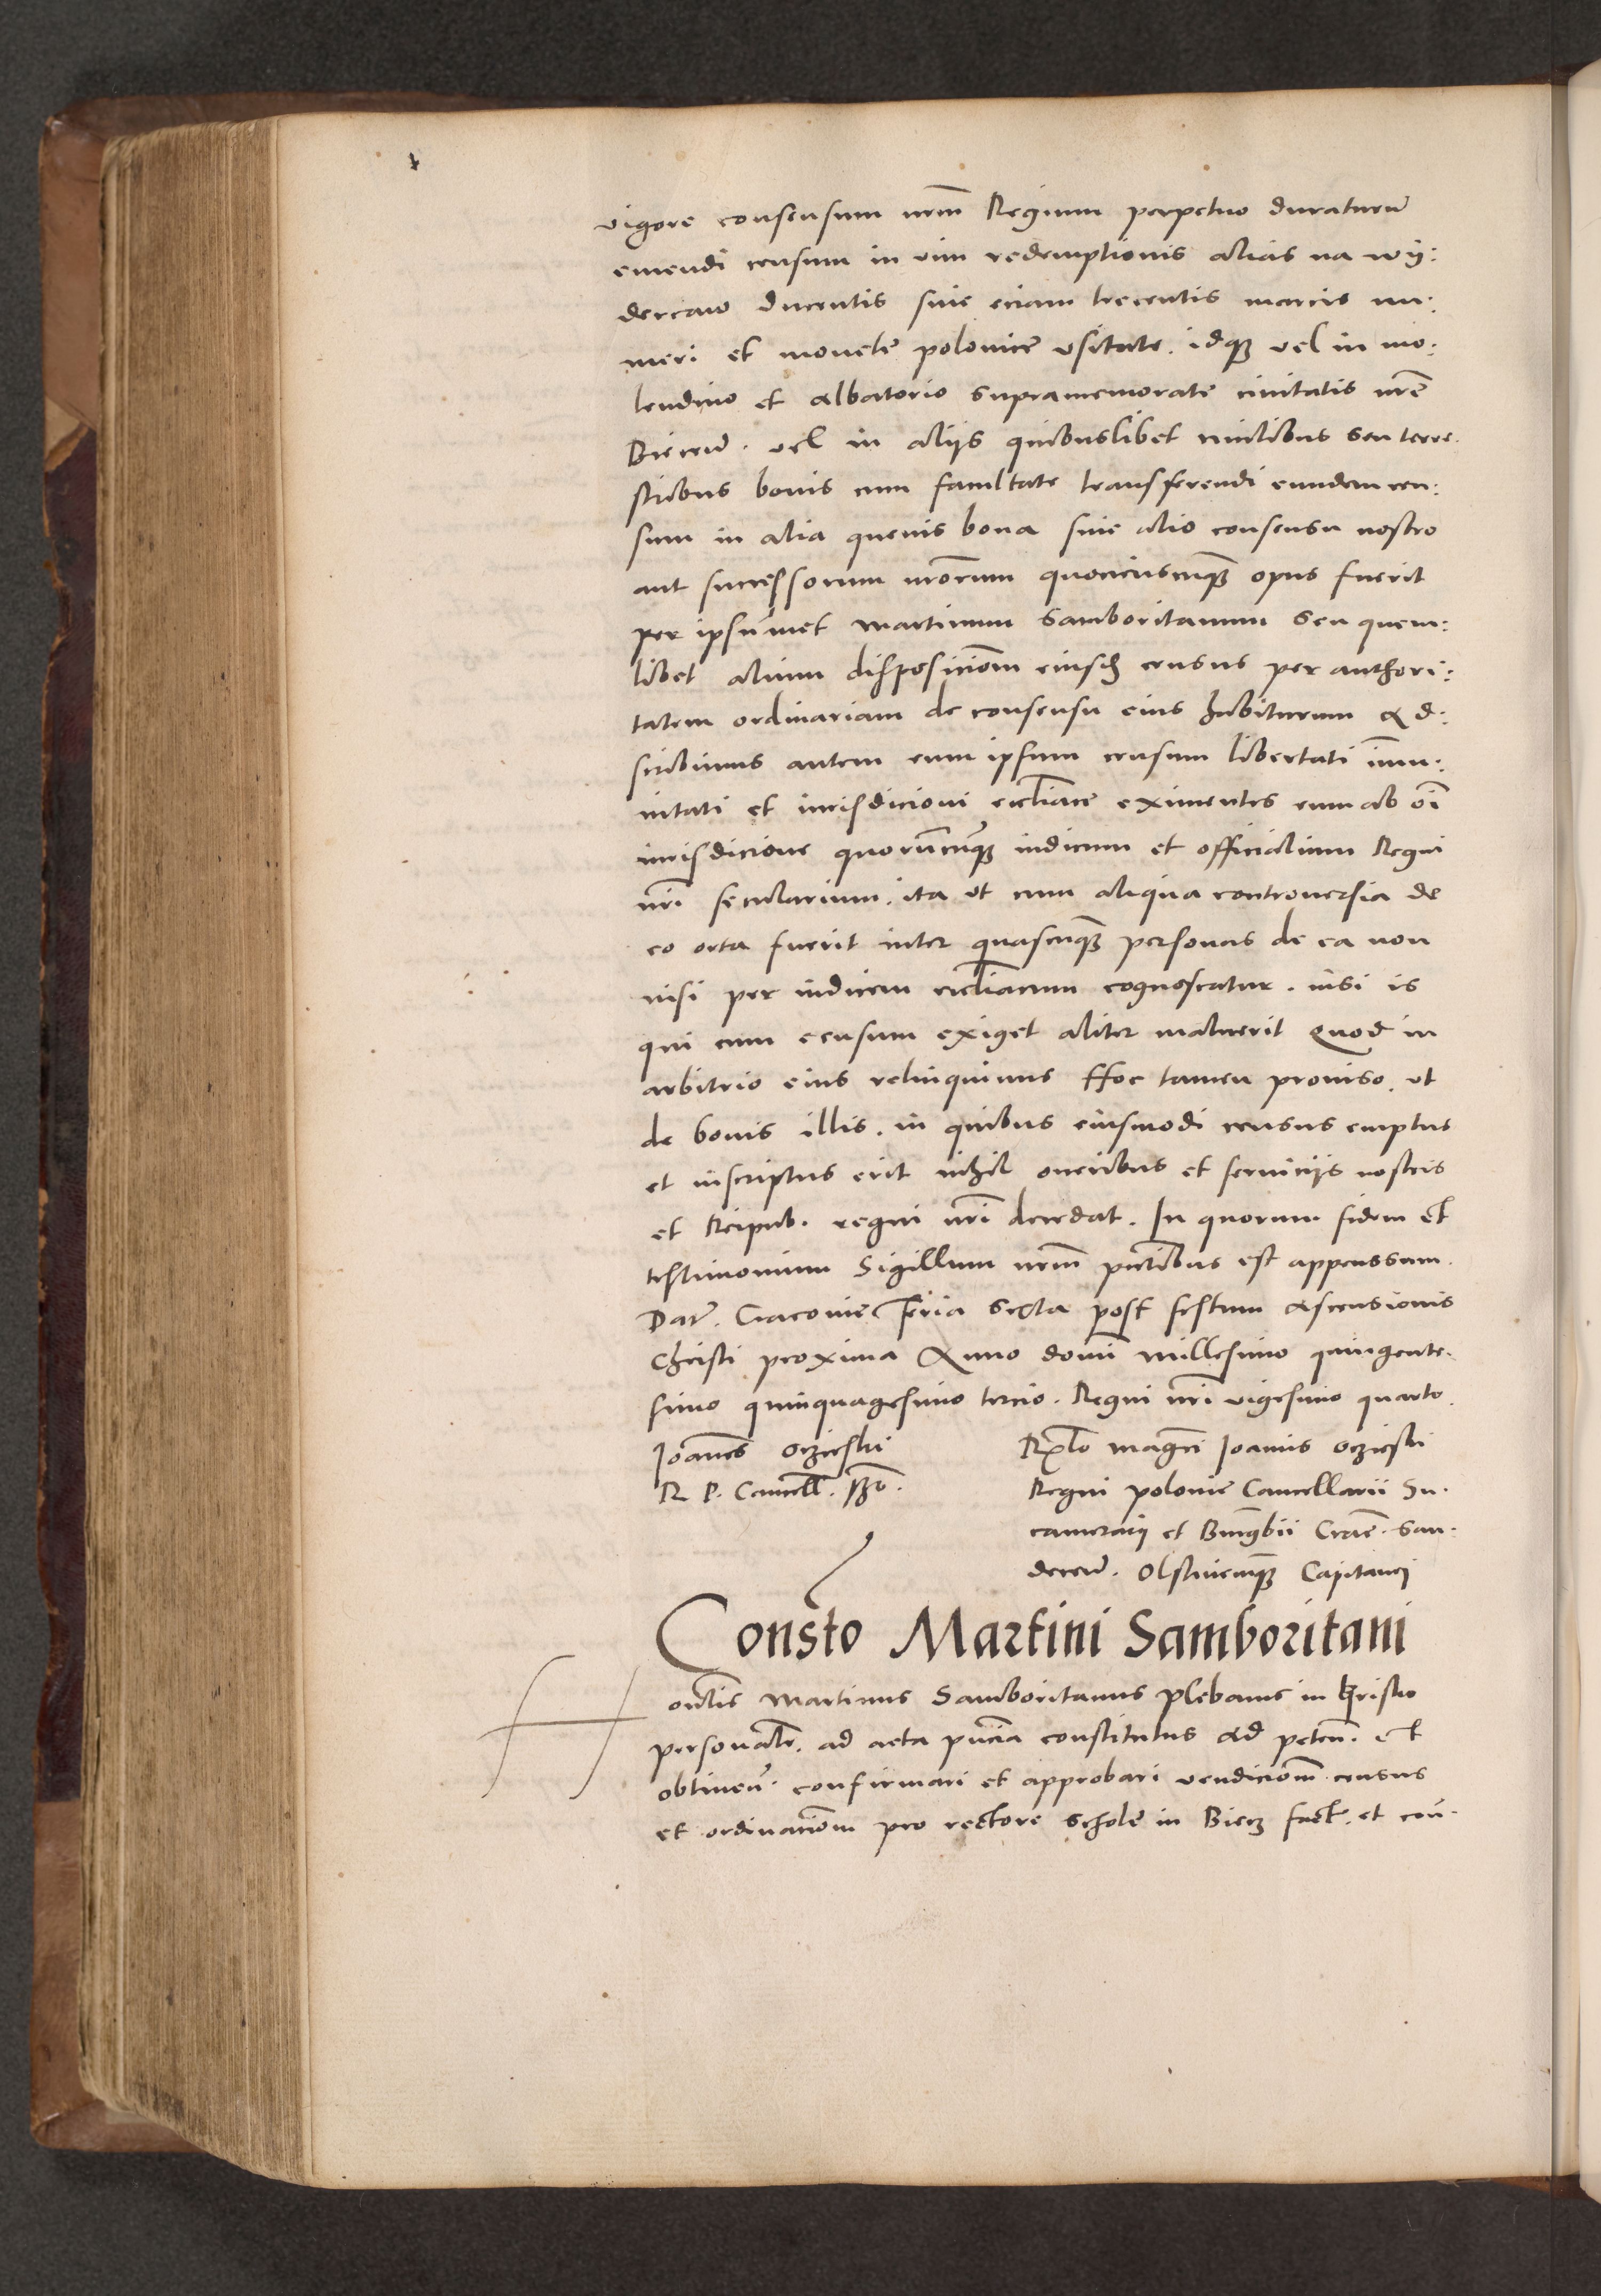 vigore consensum nrm̃ Regium perpetuo duraturũ
emendi censum in vim redemptionis alias na wÿ:
dercaw ducentis siue eciam trecentis marcis nu:
meri et monetę polonice vsitate. idq3 vel in mo:
lendino et albatorio supramemoratę ciuitatis nrę̃
Biecen̄. vel in alijs quibuslibet ciuilibus seu terre.
stribus bonis cum facultate transferendi eundem cen:
sum in alia queuis bona sine alio consensu nostro
aut successorum nrõrum quociescumq3 opus fuerit
per ipsūmet Martinum Samboritanum seu quem:
libet alium disposiciõm eiusd censūs per authori:
tatem ordinariam de consensu eius habiturum Ad:
scribimus autem eum ipsum censum libertati im̃u:
nitati et iurisdicioni eccl̃iace eximentes eum ab oĩ
iurisdicione quorũcũq3 iudicum et officialium Regni
nrĩ secularium. ita vt cum aliqua controuersia de
eo orta fuerit inter quascũq3 personas de ea non
nisi per iudicem eccl̃iacum cognoscatur. nisi is
qui eum censum exiget aliter maluerit Quod in
arbitrio eius relinquimus Hoc tamen prouiso. vt
de bonis illis. in quibus eiusmodi census emptus
et inscriptus erit nihil oneribus et seruicijs nostris
et Reipub. regni nrĩ decedat. In quorum fidem et
testimonium Sigillum nrm̃ pñtibus est appenssum.
Dat̃. Cracoviẽ Feria Sexta post festum Ascensionis
Christi proxima Anno domĩ millesimo quingente.
simo quinquagesimo tercio. Regni nrĩ vigesimo quarto.
Joañes Oczieski
R. P. Cancell̃. sst̃.
Rẽlo magc̃i Joannis Oczieski
Regni polonię Cancellarii Su.
camerarij et Burg̃bii Cracẽ. San.
decen̄. Olstinenq3 Capitanej
Consto Martini Samboritani
Honb̃lis Martinus Samboritanus plebanus in Bristw
personal̃r. ad acta pñcia constitutus ad peten̄. et
obtinen̄. confirmari et approbari vendiciõm census
et ordinaciõm pro rectore scholę in Biecz fact̃. et con̄.